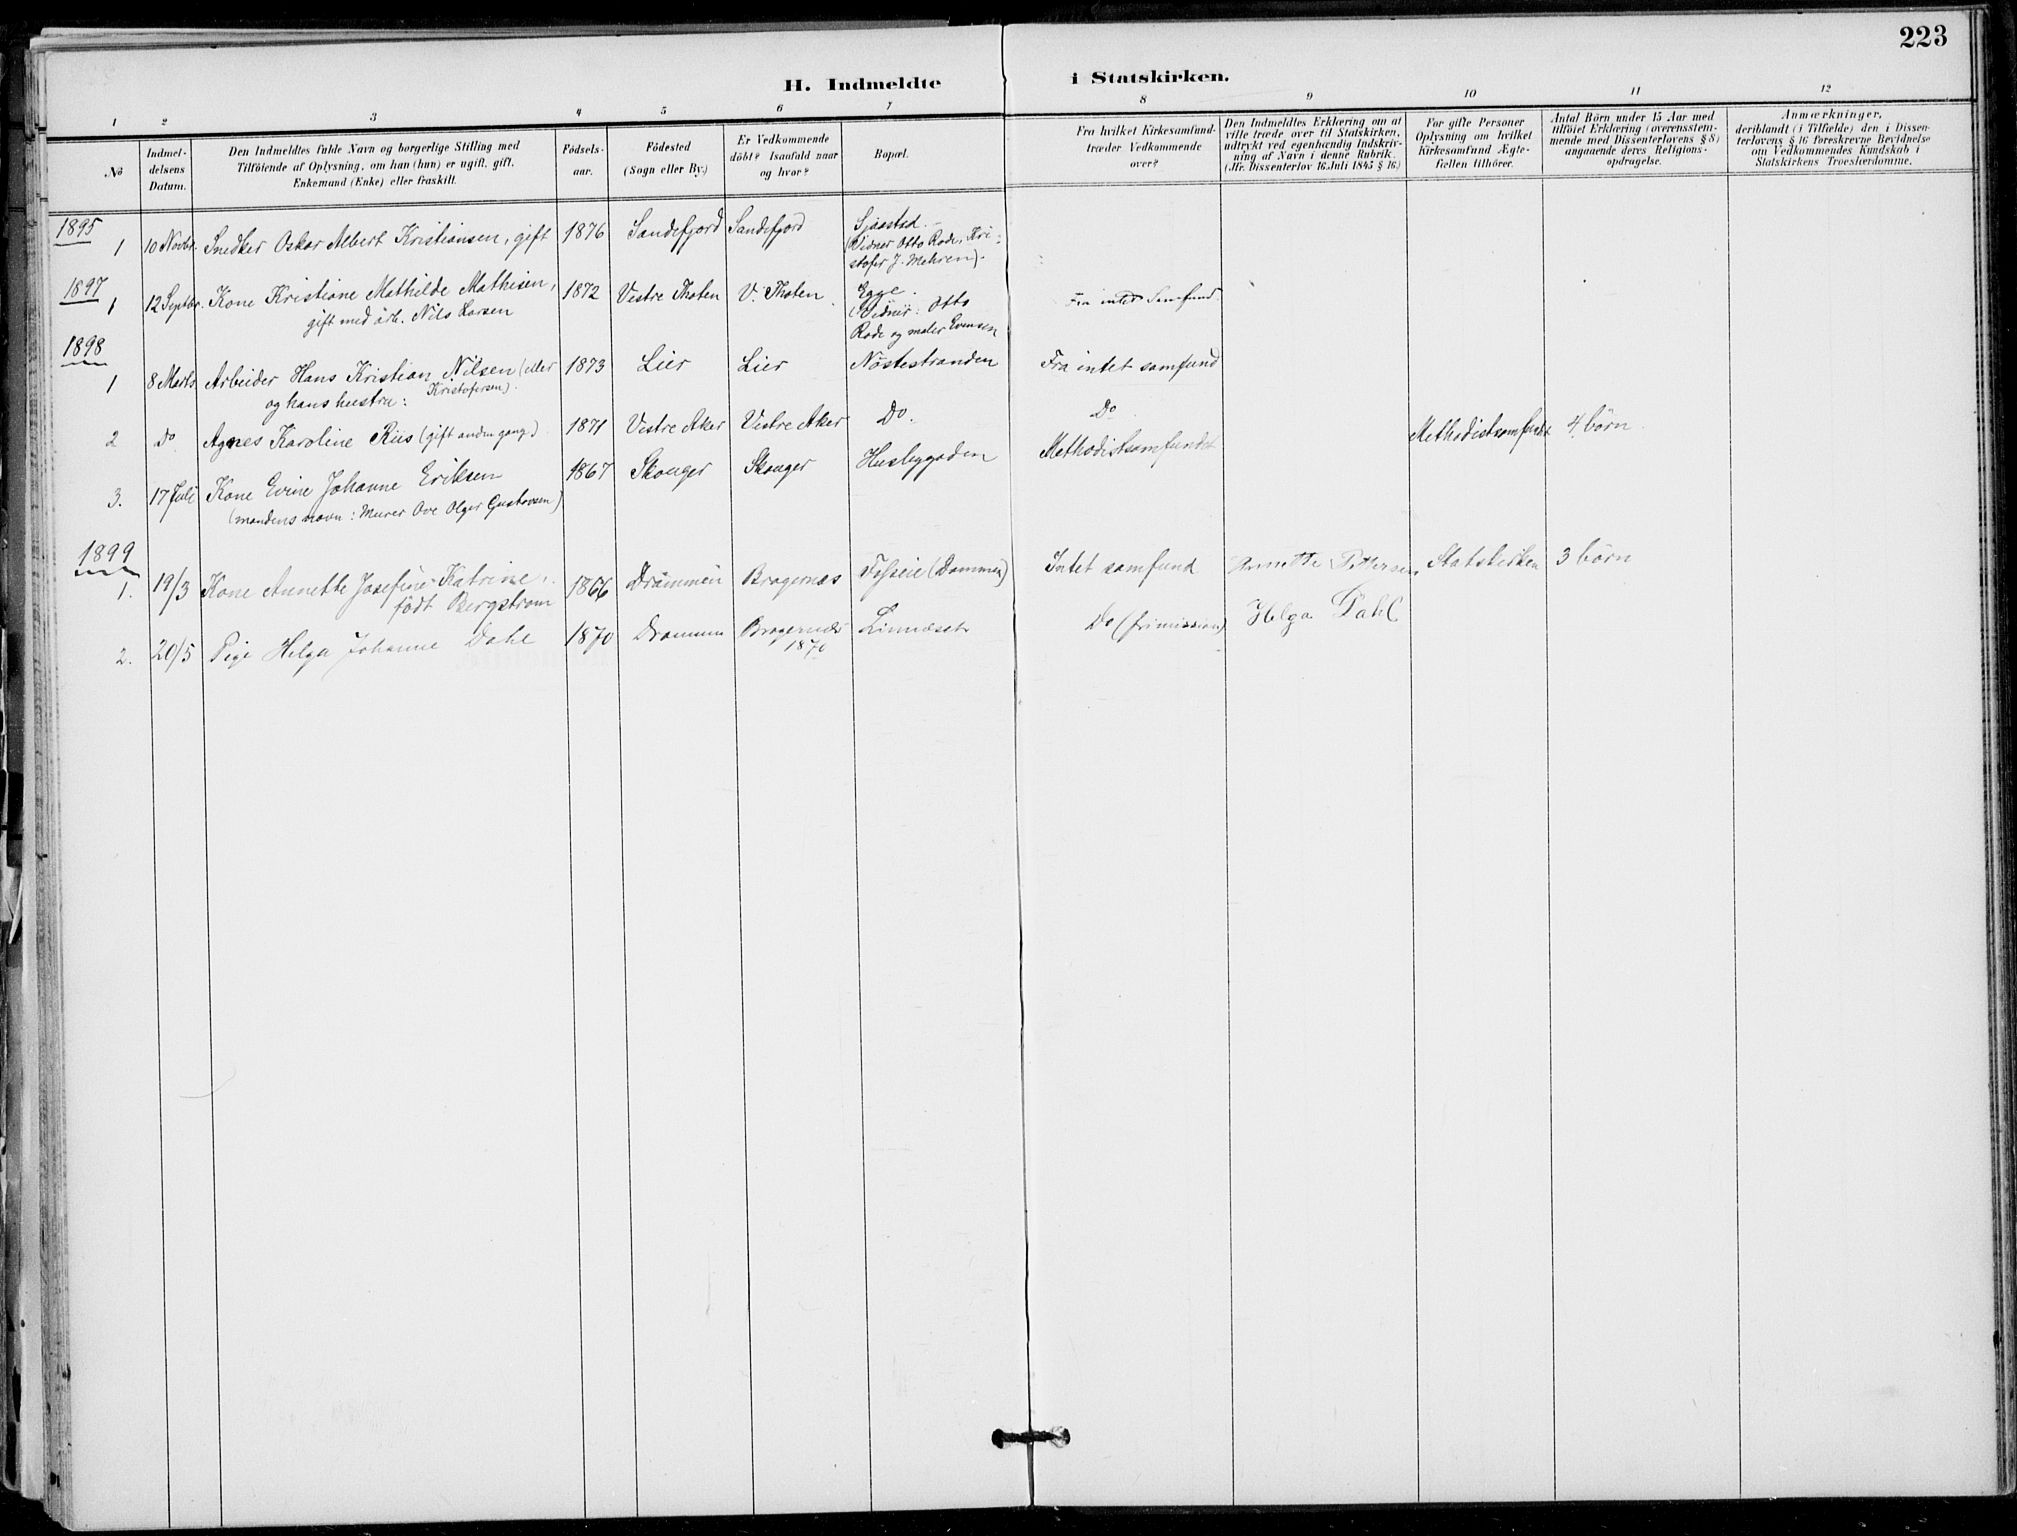 223
H. Indmeldte i Statskirken.
1 2 3 4 5 6 7 8 9 10 11 12
№
Indmel-
delsens
Datum.
Den Indmeldtes fulde Navn og borgerlige Stilling med
Tilföiende af Oplysning, om han (hun) er ugift, gift,
Enkemand (Enke) eller fraskilt.
Födsels-
aar.
Födested
(Sogn eller By.)
Er Vedkommende
döbt? Isaafald naar
og hvor?
Bopæl.
Fra hvilket Kirkesamfund-
træder Vedkommende
over?
Den Indmeldtes Erklæring om at
ville træde over til Statskirken,
udtrykt ved egenhændig Indskriv-
ning af Navn i denne Rubrik.
(Jfr. Dissenterlov 16 Juli 1845 § 16.)
For gifte Personer
Oplysning om hvilket
Kirkesamfund Ægte-
fællen tilhörer.
Antal Börn under 15 Aar med
tilföiet Erklæring (overensstem-
mende med Dissenterlovens § 8)
angaaende deres Religions-
opdragelse.
Anmærkninger,
deriblandt (i Tilfælde) den i Dissen-
terlovens § 16 foreskrevne Bevidnelse
om Vedkommendes Kundskab i
Statskirkens Troeslærdomme.
1895
1 10 Novbr. Snedker Oskar Albert Kristiansen, gift 1876 Sandefjord Sandefjord Sjaastad.
(Vidner Otto Rode, Kri-
stofer J. Mehren).
1897
1 12 Septbr. Kone Kristiane Mathilde Mathisen, 1872 Vestre Thoten V. Thoten Egge. Fra intet Samfund.
gift med arb. Nils Larsen
(Vidner: Otto
Rode og maler Evensen
1898
1 8 Marts Arbeider Hans Kristian Nilsen (eller 1873 Lier Lier Nöstestranden Fra intet samfund
Kristofersen).
og hans hustru:
2 Do Agnes Karoline Riis (gift anden gang.) 1871 Vestre Aker Vestre Aker Do. Do Methodistsamfundet 4 börn.
3. 17 Juli Kone Evine Johanne Eriksen 1867 Skouger Skouger Husebygaden Methodistsamfundet
(mandens navn: Murer Ove Olger Gustavsen)
1899
1. 19/3 Kone Annette Josefine Katrine, 1866 Drammen Bragernæs (Dammen) Intet samfund Annette Pettersen Statskirken 3 börn
födt Bergstrøm
2. 20/5 Pige Helga Johanne Dahl 1870 Drammen Bragernæs Linnæsstr Do (frimission) Helga Dahl
1870